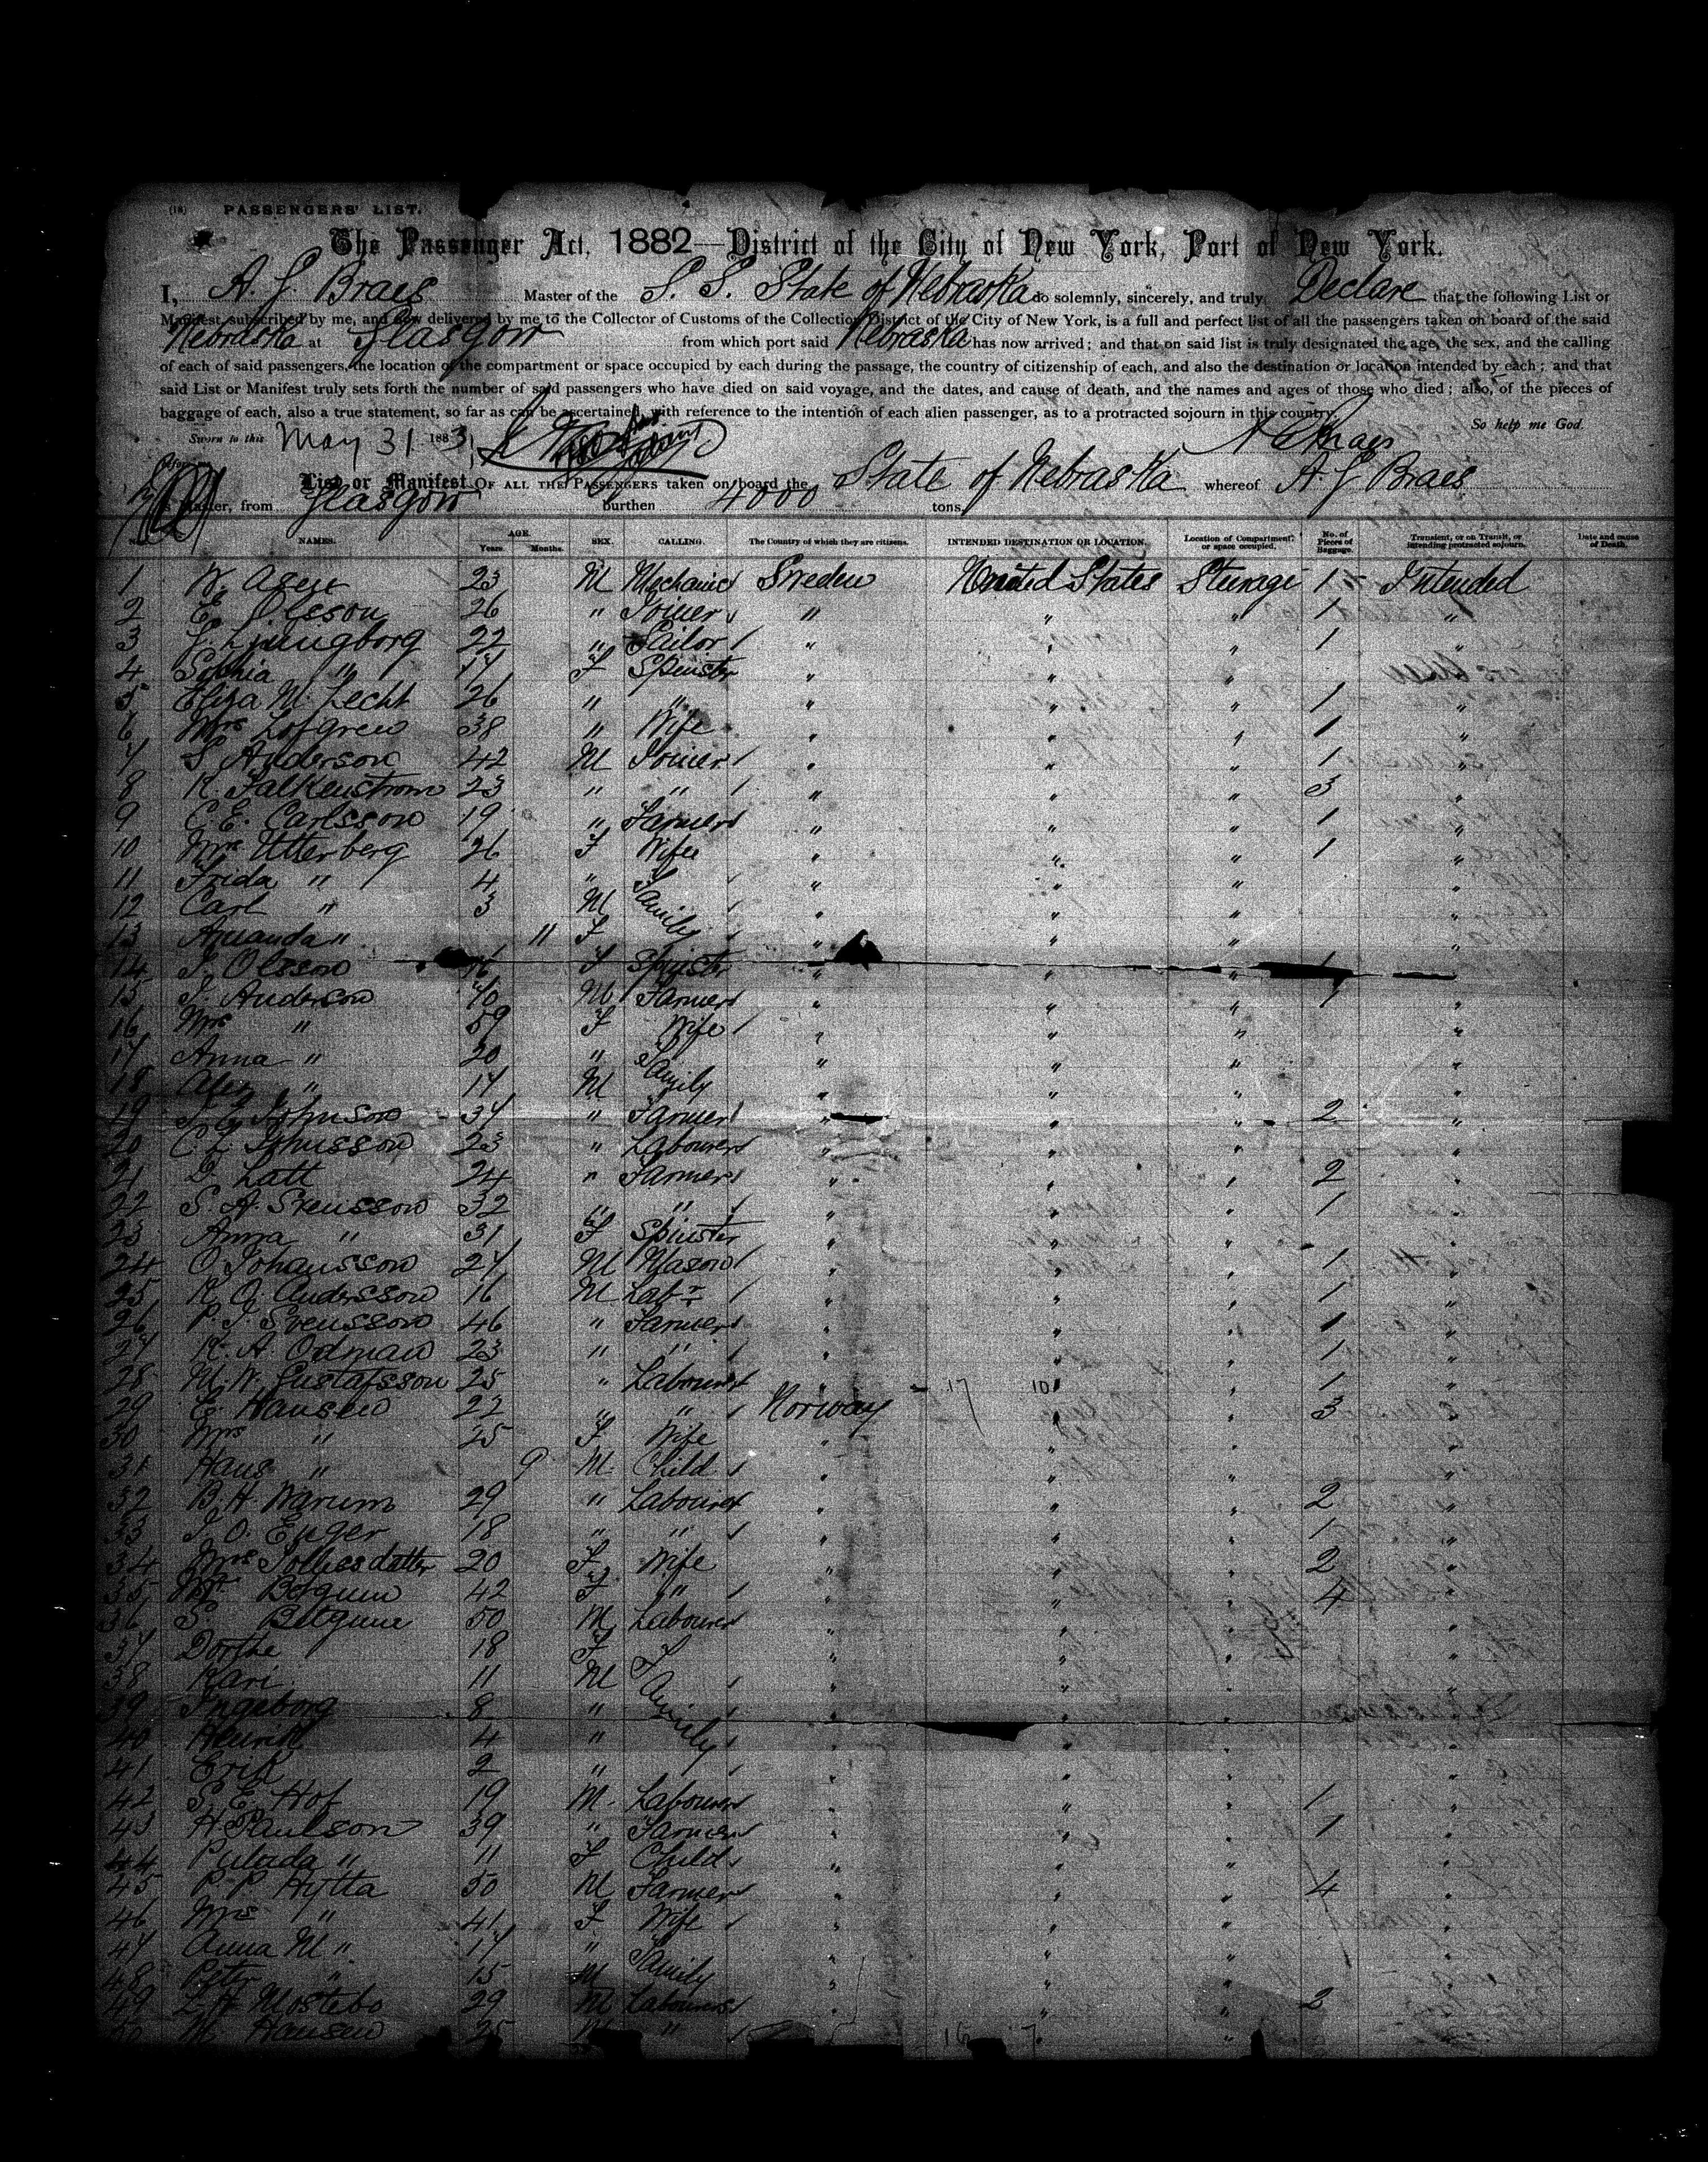 (18) PASSENGERS' LIST.
The Passenger Act, 1882—District of the City of New York, Port of New York.
I, A. G. Braes Master of the S. S. State of Nebraska do solemnly, sincerely, and truly Declare that the following List or
Manifest, subscribed by me, and now delivered by me to the Collector of Customs of the Collection District of the City of New York, is a full and perfect list of all the passengers taken on board of the said
Nebraska at Glasgow from which port said Nebraska has now arrived; and that on said list is truly designated the age, the sex, and the calling
of each of said passengers, the location of the compartment or space occupied by each during the passage, the country of citizenship of each, and also the destination or location intended by each; and that
said List or Manifest truly sets forth the number of said passengers who have died on said voyage, and the dates, and cause of death, and the names and ages of those who died; also, of the pieces of
baggage of each, also a true statement, so far as can be ascertained, with reference to the intention of each alien passenger, as to a protracted sojourn in this country.
So help me God.
Sworn to this May 31 1883 A G Braes
List or Manifest OF ALL THE PASSENGERS taken on board the State of Nebraska whereof A. G Braes
is Master, from Glasgow burthen 4000 tons.
NAMES. AGE. Years. Months. SEX. CALLING. The Country of which they are citizens. INTENDED DESTINATION OR LOCATION. Location of Compartment or space occupied. No. of Pieces of Baggage. Transient, or on Transit, or intending protracted sojourn. Date and cause of Death.
1 W. 23 M Mechanic Sweden United States Steerage 1 Intended
2 E. Olsson 26 " Joiner " " " 1 "
3 J. Ljungborg 22 " Sailor " " " 1 "
4 Sophia " 17 F Spinster " " "
5 Eliza M. Lecht 26 " " " " " 1 "
6 Mrs Lofgren 38 " Wife " " " 1 "
7 S Anderson 42 M Joiner " " " 1 "
8 K. Falkenstrom 23 " " " " " 3 "
9 C. E. Carlsson 19 " Farmer " " " 1 "
10 Mrs Utterberg 26 F Wife " " " 1 "
11 Frida " 4 " Family " " " "
12 Carl " 3 M " " " "
13 Amanda " 11 F " " " "
14 J. Olsson 16 F Spinster " " " 1
15 J. Anderson 70 M Farmer " " " 1 "
16 Mrs " 59 F Wife " " " "
17 Anna " 20 " Family " " " "
18 Alex " 17 M " " " "
19 J. Johnson 34 " Farmer " " " 2 "
20 C L Johnsson 23 " Labourer " " " "
21 Latt 24 " Farmer " " " 2 "
22 S. A. Svensson 32 " " " " " 1 "
23 Anna " 31 F Spinster " " " "
24 O Johansson 27 M Mason " " " 1 "
25 K. O. Andersson 16 M Labr " " " 1 "
26 P. J. Svensson 46 " Farmer " " " 1 "
27 K. A. Odman 23 " " " " " 1 "
28 M. W. Gustafsson 25 " Labourer 17 10 " 1 "
29 E. Hansen 22 " " Norway " " 3 "
30 Mrs " 25 F Wife " " " "
31 Hans " 9 M Child " " " "
32 B. H. Warum 29 " Labourer " " " 2 "
33 J. O. Enger 18 " " " " " 1 "
34 Mrs Tolliesdatter 20 F Wife " " " 2 "
35 42 F " " " " 4 "
36 S 50 M Labourer " " " "
37 Dorthe 18 F Family " " " "
38 Kari 11 M " " " "
39 Ingeborg 8 " " " " "
40 Henrik 4 " " " " "
41 Erik 2 " " " " "
42 S. E. Hof 19 M. Labourer " " " 1 "
43 H Paulson 39 " Farmer " " " 1 "
44 " 11 F Child " " " "
45 P. P. Hytta 50 M Farmer " " " 4 "
46 Mrs " 41 F Wife " " " "
47 Anna M " 17 " Family " " " "
48 Peter " 15 M " " " "
49 L. H Mostebo 29 M Labourers " " " 2 "
50 M. Hansen 25 M " 16 7